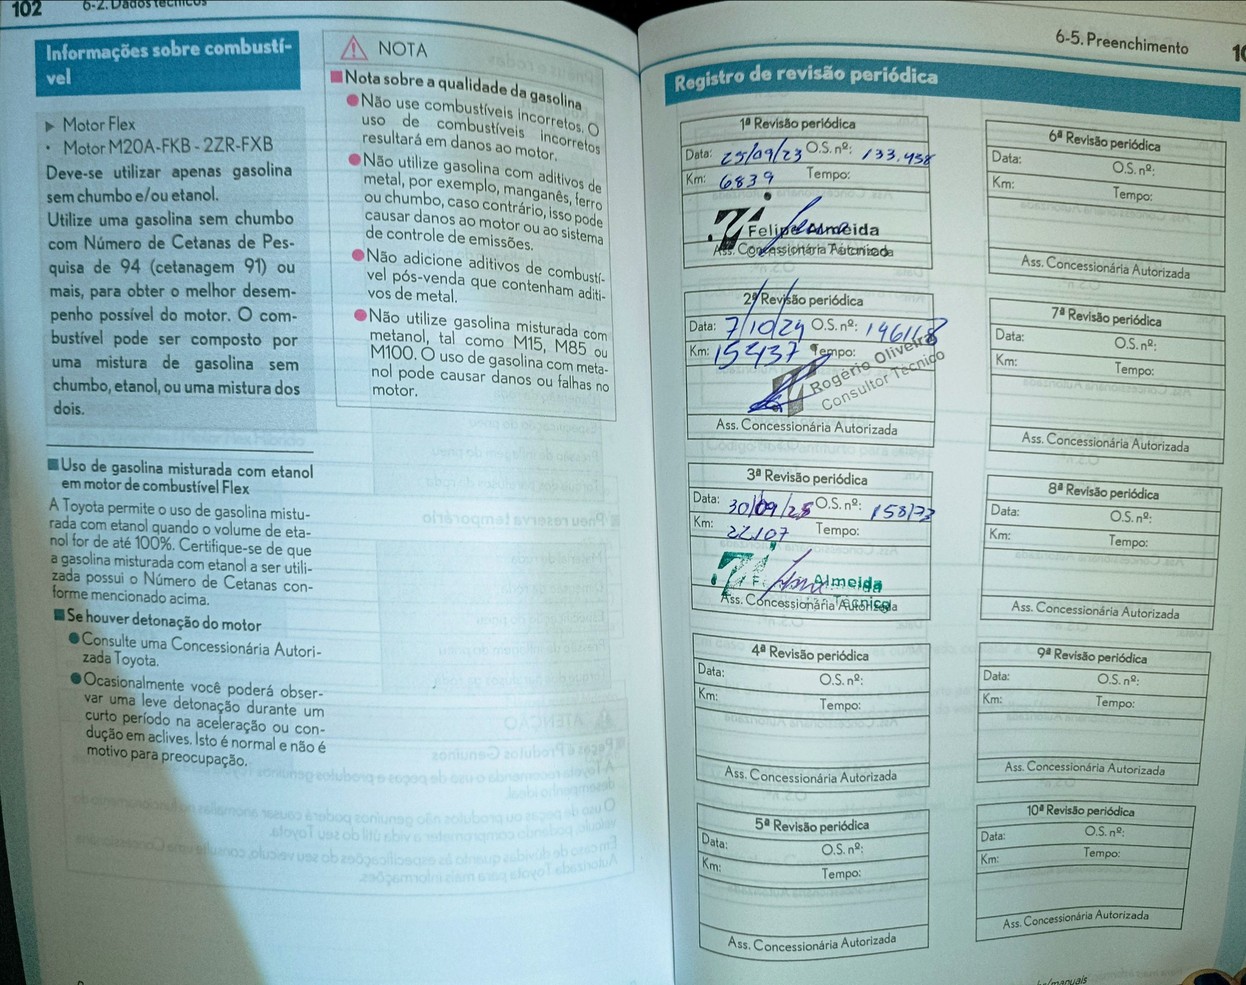 102
6-2. Dados técnicos
Informações sobre combustí-
vel
▶ Motor Flex
• Motor M20A-FKB - 2ZR-FXB
Deve-se utilizar apenas gasolina
sem chumbo e/ou etanol.
Utilize uma gasolina sem chumbo
com Número de Cetanas de Pes-
quisa de 94 (cetanagem 91) ou
mais, para obter o melhor desem-
penho possível do motor. O com-
bustível pode ser composto por
uma mistura de gasolina sem
chumbo, etanol, ou uma mistura dos
dois.
■ Uso de gasolina misturada com etanol
em motor de combustível Flex
A Toyota permite o uso de gasolina mistu-
rada com etanol quando o volume de eta-
nol for de até 100%. Certifique-se de que
a gasolina misturada com etanol a ser utili-
zada possui o Número de Cetanas con-
forme mencionado acima.
■ Se houver detonação do motor
● Consulte uma Concessionária Autori-
zada Toyota.
● Ocasionalmente você poderá obser-
var uma leve detonação durante um
curto período na aceleração ou con-
dução em aclives. Isto é normal e não é
motivo para preocupação.
NOTA
■ Nota sobre a qualidade da gasolina
● Não use combustíveis incorretos. O
uso de combustíveis incorretos
resultará em danos ao motor.
● Não utilize gasolina com aditivos de
metal, por exemplo, manganês, ferro
ou chumbo, caso contrário, isso pode
causar danos ao motor ou ao sistema
de controle de emissões.
● Não adicione aditivos de combustí-
vel pós-venda que contenham aditi-
vos de metal.
● Não utilize gasolina misturada com
metanol, tal como M15, M85 ou
M100. O uso de gasolina com meta-
nol pode causar danos ou falhas no
motor.
6-5. Preenchimento
Registro de revisão periódica
1ª Revisão periódica
Data: 25/09/23 O.S. nº: 133.458
Km: 6839 Tempo:
Felipe Almeida
Ass. Concessionária Autorizada
2ª Revisão periódica
Data: 7/10/24 O.S. nº: 146168
Km: 15437 Tempo:
Rogério Oliveira
Consultor Técnico
Ass. Concessionária Autorizada
3ª Revisão periódica
Data: 30/09/25 O.S. nº: 158173
Km: 22107 Tempo:
Almeida
Técnico
Ass. Concessionária Autorizada
4ª Revisão periódica
Data: O.S. nº:
Km: Tempo:
Ass. Concessionária Autorizada
5ª Revisão periódica
Data: O.S. nº:
Km: Tempo:
Ass. Concessionária Autorizada
6ª Revisão periódica
Data: O.S. nº:
Km: Tempo:
Ass. Concessionária Autorizada
7ª Revisão periódica
Data: O.S. nº:
Km: Tempo:
Ass. Concessionária Autorizada
8ª Revisão periódica
Data: O.S. nº:
Km: Tempo:
Ass. Concessionária Autorizada
9ª Revisão periódica
Data: O.S. nº:
Km: Tempo:
Ass. Concessionária Autorizada
10ª Revisão periódica
Data: O.S. nº:
Km: Tempo:
Ass. Concessionária Autorizada